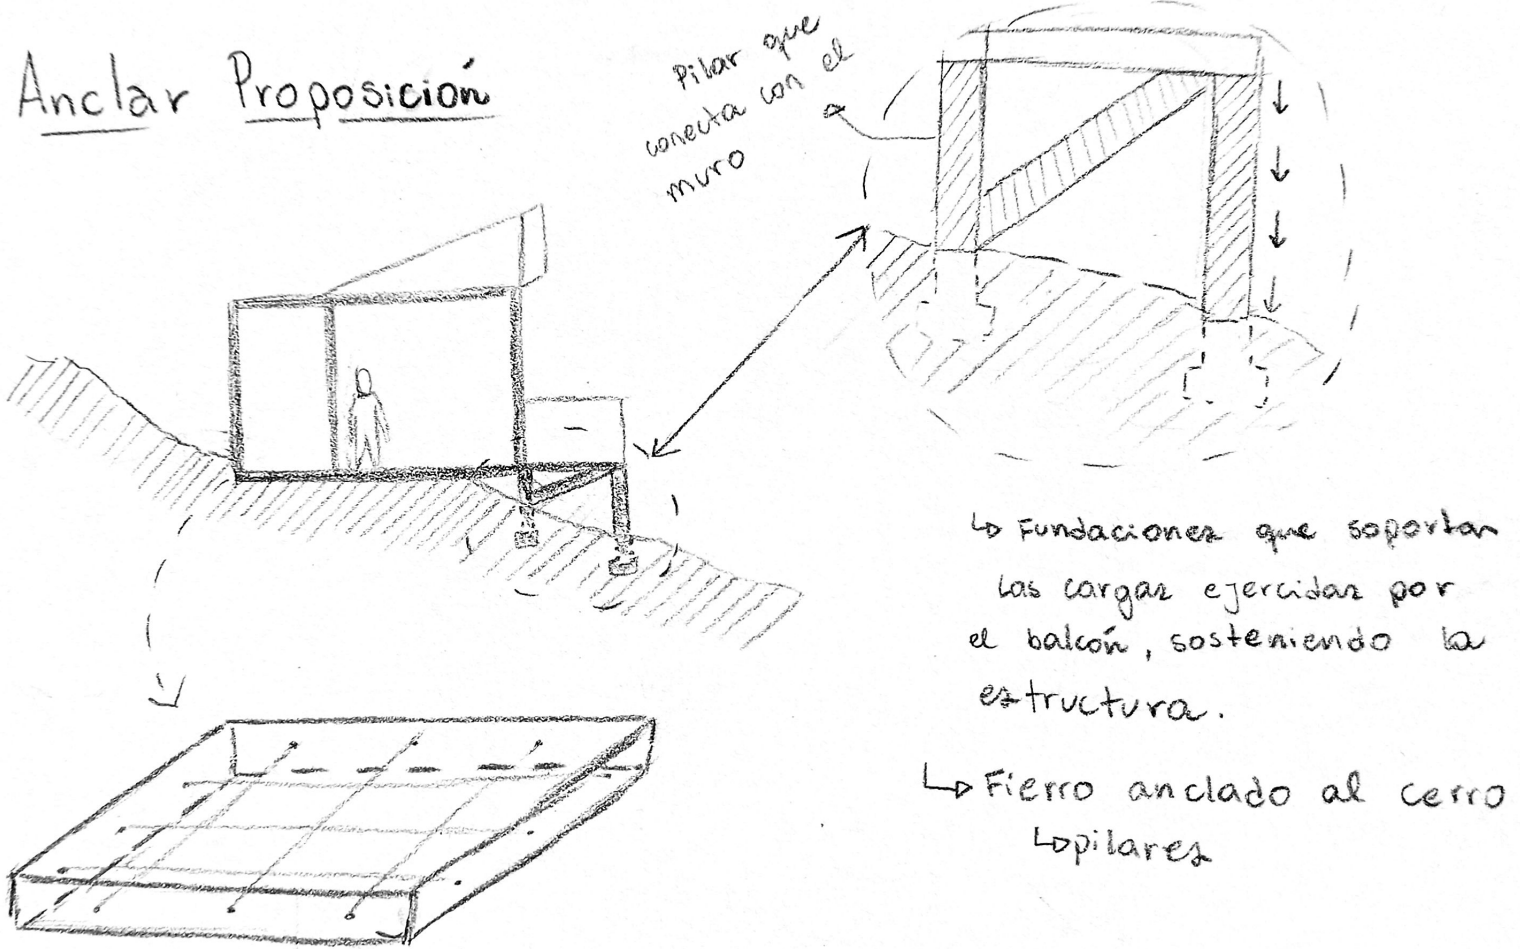 Anclar Proposición
Pilar que
conecta con el
muro
Fundaciones que soportan
las cargas ejercidas por
el balcón, sosteniendo la
estructura.
Fierro anclado al cerro
pilares